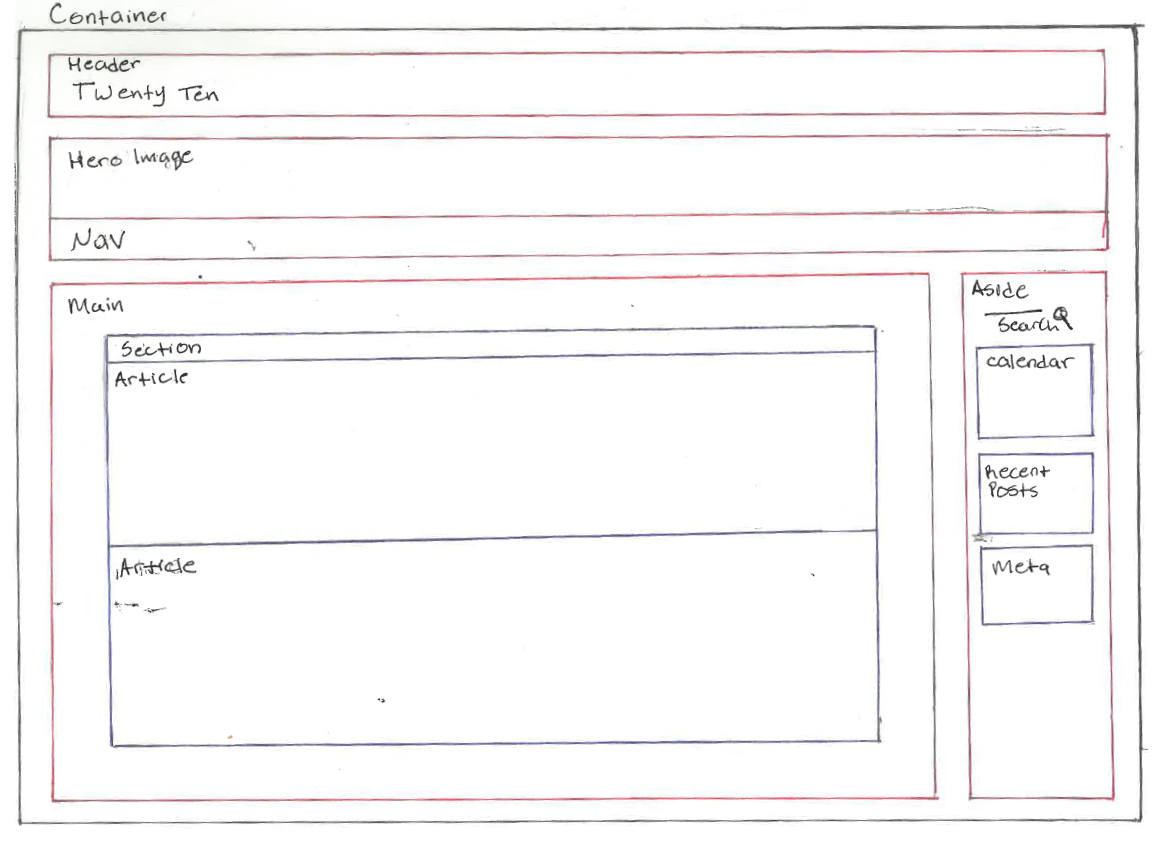 Container
Header
Twenty Ten
Hero Image
Nav
Main
Section
Article
Article
Aside
Search
calendar
Recent
Posts
Meta